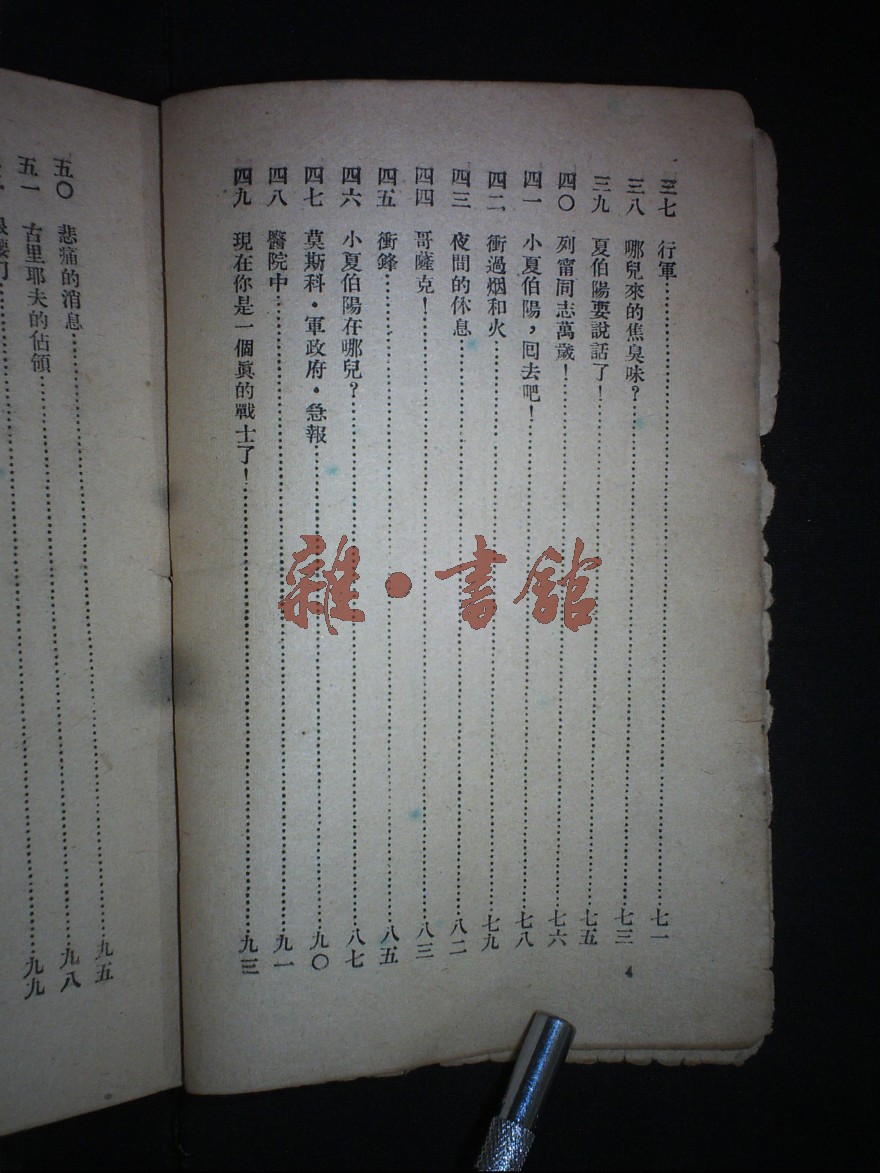 三七 行軍……七一
三八 哪兒來的焦臭味？……七三
三九 夏伯陽要說話了！……七五
四〇 列甯同志萬歲！……七六
四一 小夏伯陽，回去吧！……七八
四二 衝過烟和火……七九
四三 夜間的休息……八二
四四 哥薩克！……八三
四五 衝鋒……八五
四六 小夏伯陽在哪兒？……八七
四七 莫斯科·軍政府·急報……九〇
四八 醫院中……九一
四九 現在你是一個眞的戰士了！……九三
4
五〇 悲痛的消息……九五
五一 古里耶夫的佔領……九八
九九
雜·書館